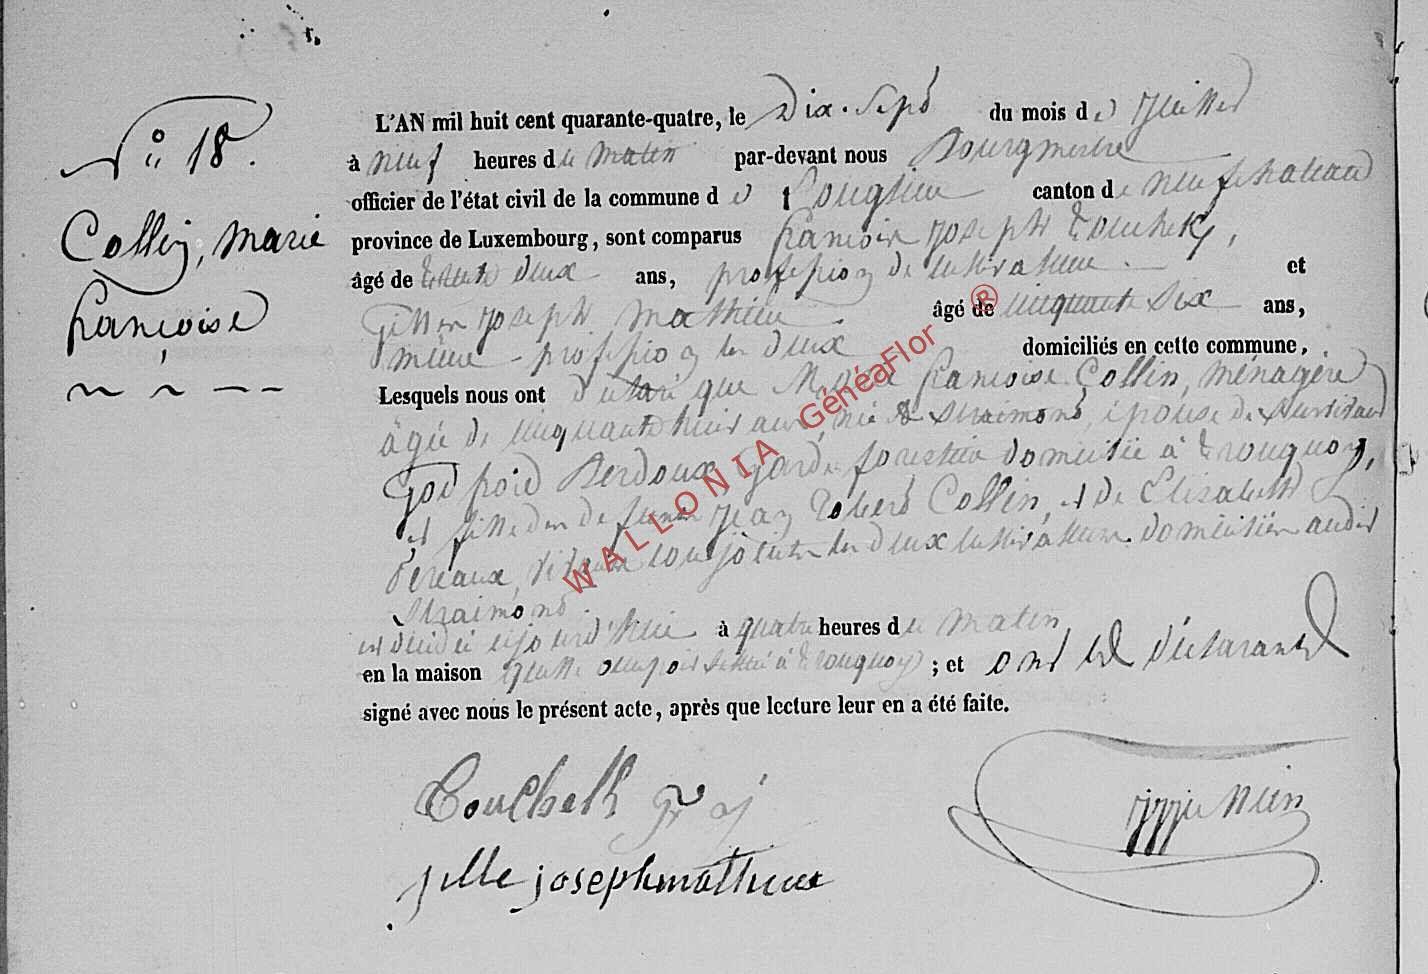 N° 18.
Collin, Marie
françoise
L'AN mil huit cent quarante-quatre, le Dix-Sept du mois de Juillet
à neuf heures du matin par-devant nous Bourgmestre
officier de l'état civil de la commune de Longlier canton de neufchateau
province de Luxembourg, sont comparus françois joseph
âgé de trente deux ans, profession de cultivateur et
Gillet joseph Mathieu âgé de cinquante Six ans,
même profession les deux domiciliés en cette commune,
Lesquels nous ont déclaré que Marie françoise Collin, ménagère
âgée de cinquante huit ans, née à Straimont, épouse de
Godfroid Derdoux, Garde forestier domicilié à tronquoy,
et fille de jean Robert Collin, et de Elisabeth
conjointe les deux cultivateurs domiciliés audit
Straimont
est décédée aujourd'hui à quatre heures du matin
en la maison qu'elle occupoit située à tronquoy ; et ont les déclarants
signé avec nous le présent acte, après que lecture leur en a été faite.
jille joseph mathieu
WALLONIA GénéaFlor ®